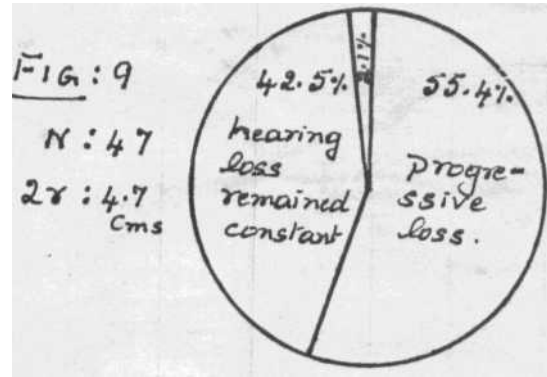 FIG : 9
N : 47
2r : 4.7
cms
42.5%
hearing
loss
remained
constant
2.1%
55.4%
progre-
ssive
loss.